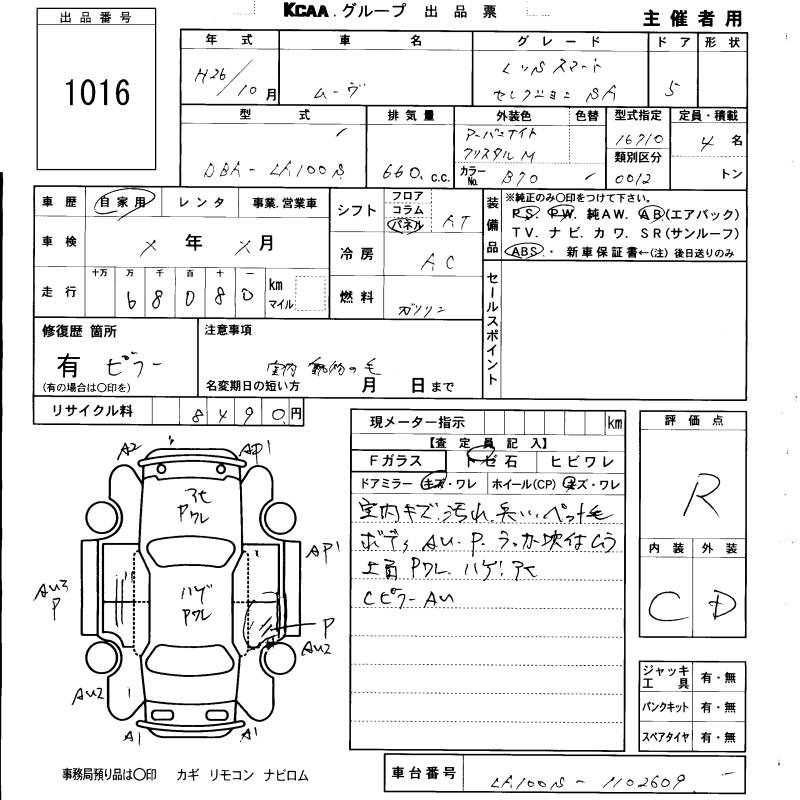 KCAA グループ 出品票
主催者用
出品番号
1016
年式 車名 グレード ドア 形状
H26/10月 ムーヴ 5
セレクション SA
型式 排気量 外装色 色替 型式指定 定員・積載
DBA-LA100S 660 c.c. アーバンナイト 16710 4名
クリスタルM 類別区分
カラーNo. B70 0012 トン
車歴 自家用 レンタ 事業.営業車
シフト フロア コラム パネル AT
装備品 ※純正のみ○印をつけて下さい。
PS. PW. 純AW. AB(エアバック)
TV. ナビ. カワ. SR(サンルーフ)
ABS. 新車保証書←(注)後日送りのみ
車検 メ年 メ月
冷房 AC
走行 十万 万 千 百 十 一
68080 km マイル
燃料 ガソリン
セールスポイント
修復歴 箇所
有 ピラー
(有の場合は○印を)
注意事項
室内 動物の毛
名変期日の短い方 月 日まで
リサイクル料 8490円
現メーター指示 km
【査定員記入】
Fガラス トビ石 ヒビワレ
ドアミラー キズ・ワレ ホイール(CP) キズ・ワレ
室内キズ.汚れ.臭い.ペット毛
ボディ AU.P.
上面 Pワレ.ハゲ!
CピラーAU
評価点
R
内装 外装
C D
ジャッキ工具 有・無
パンクキット 有・無
スペアタイヤ 有・無
A2 AP1
Pワレ
AP1
AU3
P
ハゲ
Pワレ
P
AU2
AU2
A1 A1
事務局預り品は○印 カギ リモコン ナビロム
車台番号 LA100S-1102609